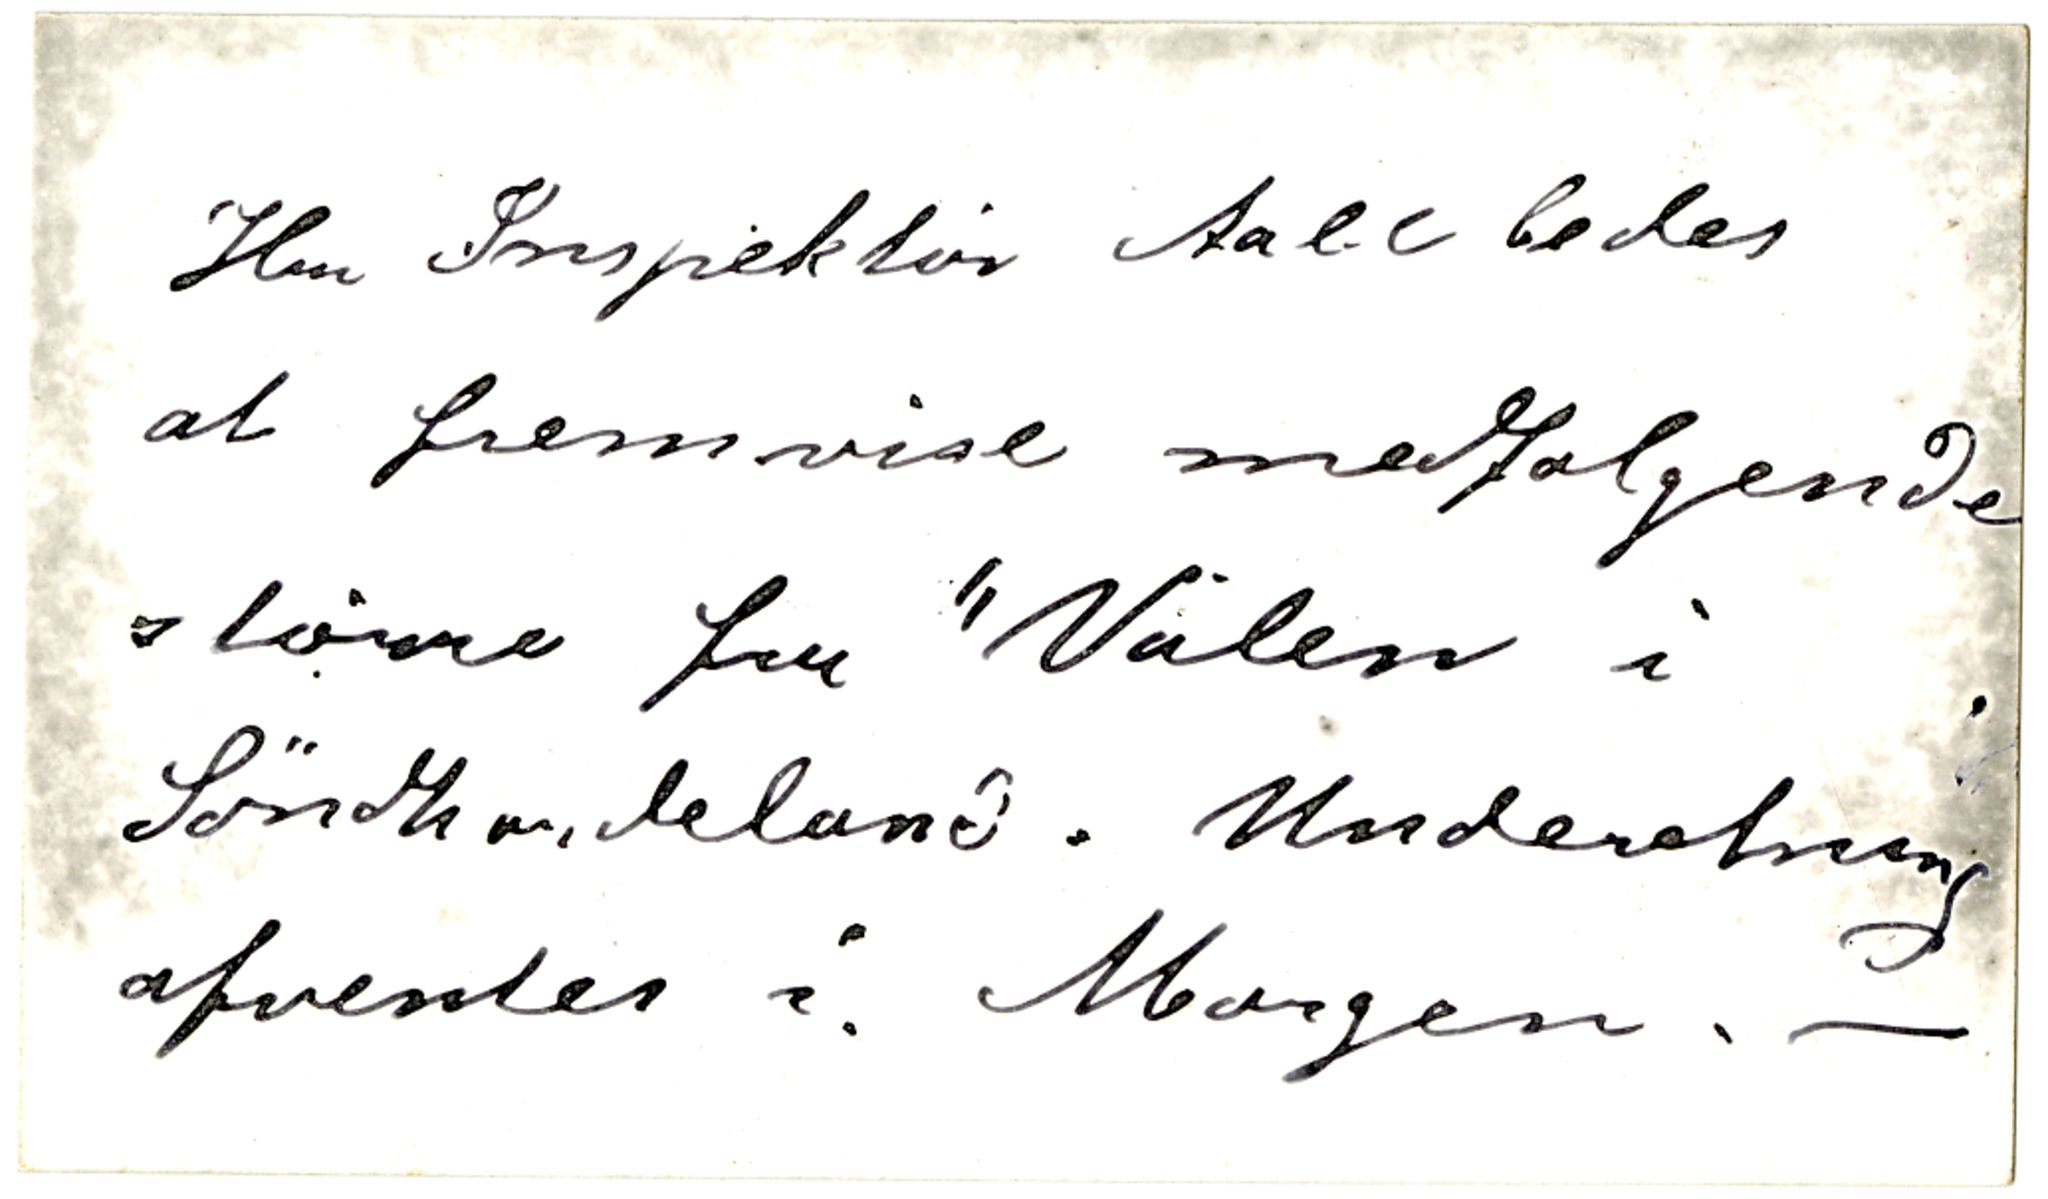 Hr Inspektör Aall bedes
at fremvise medfølgende
fra "Valen i
Söndhordeland. Underetning
afventes i Morgen. —